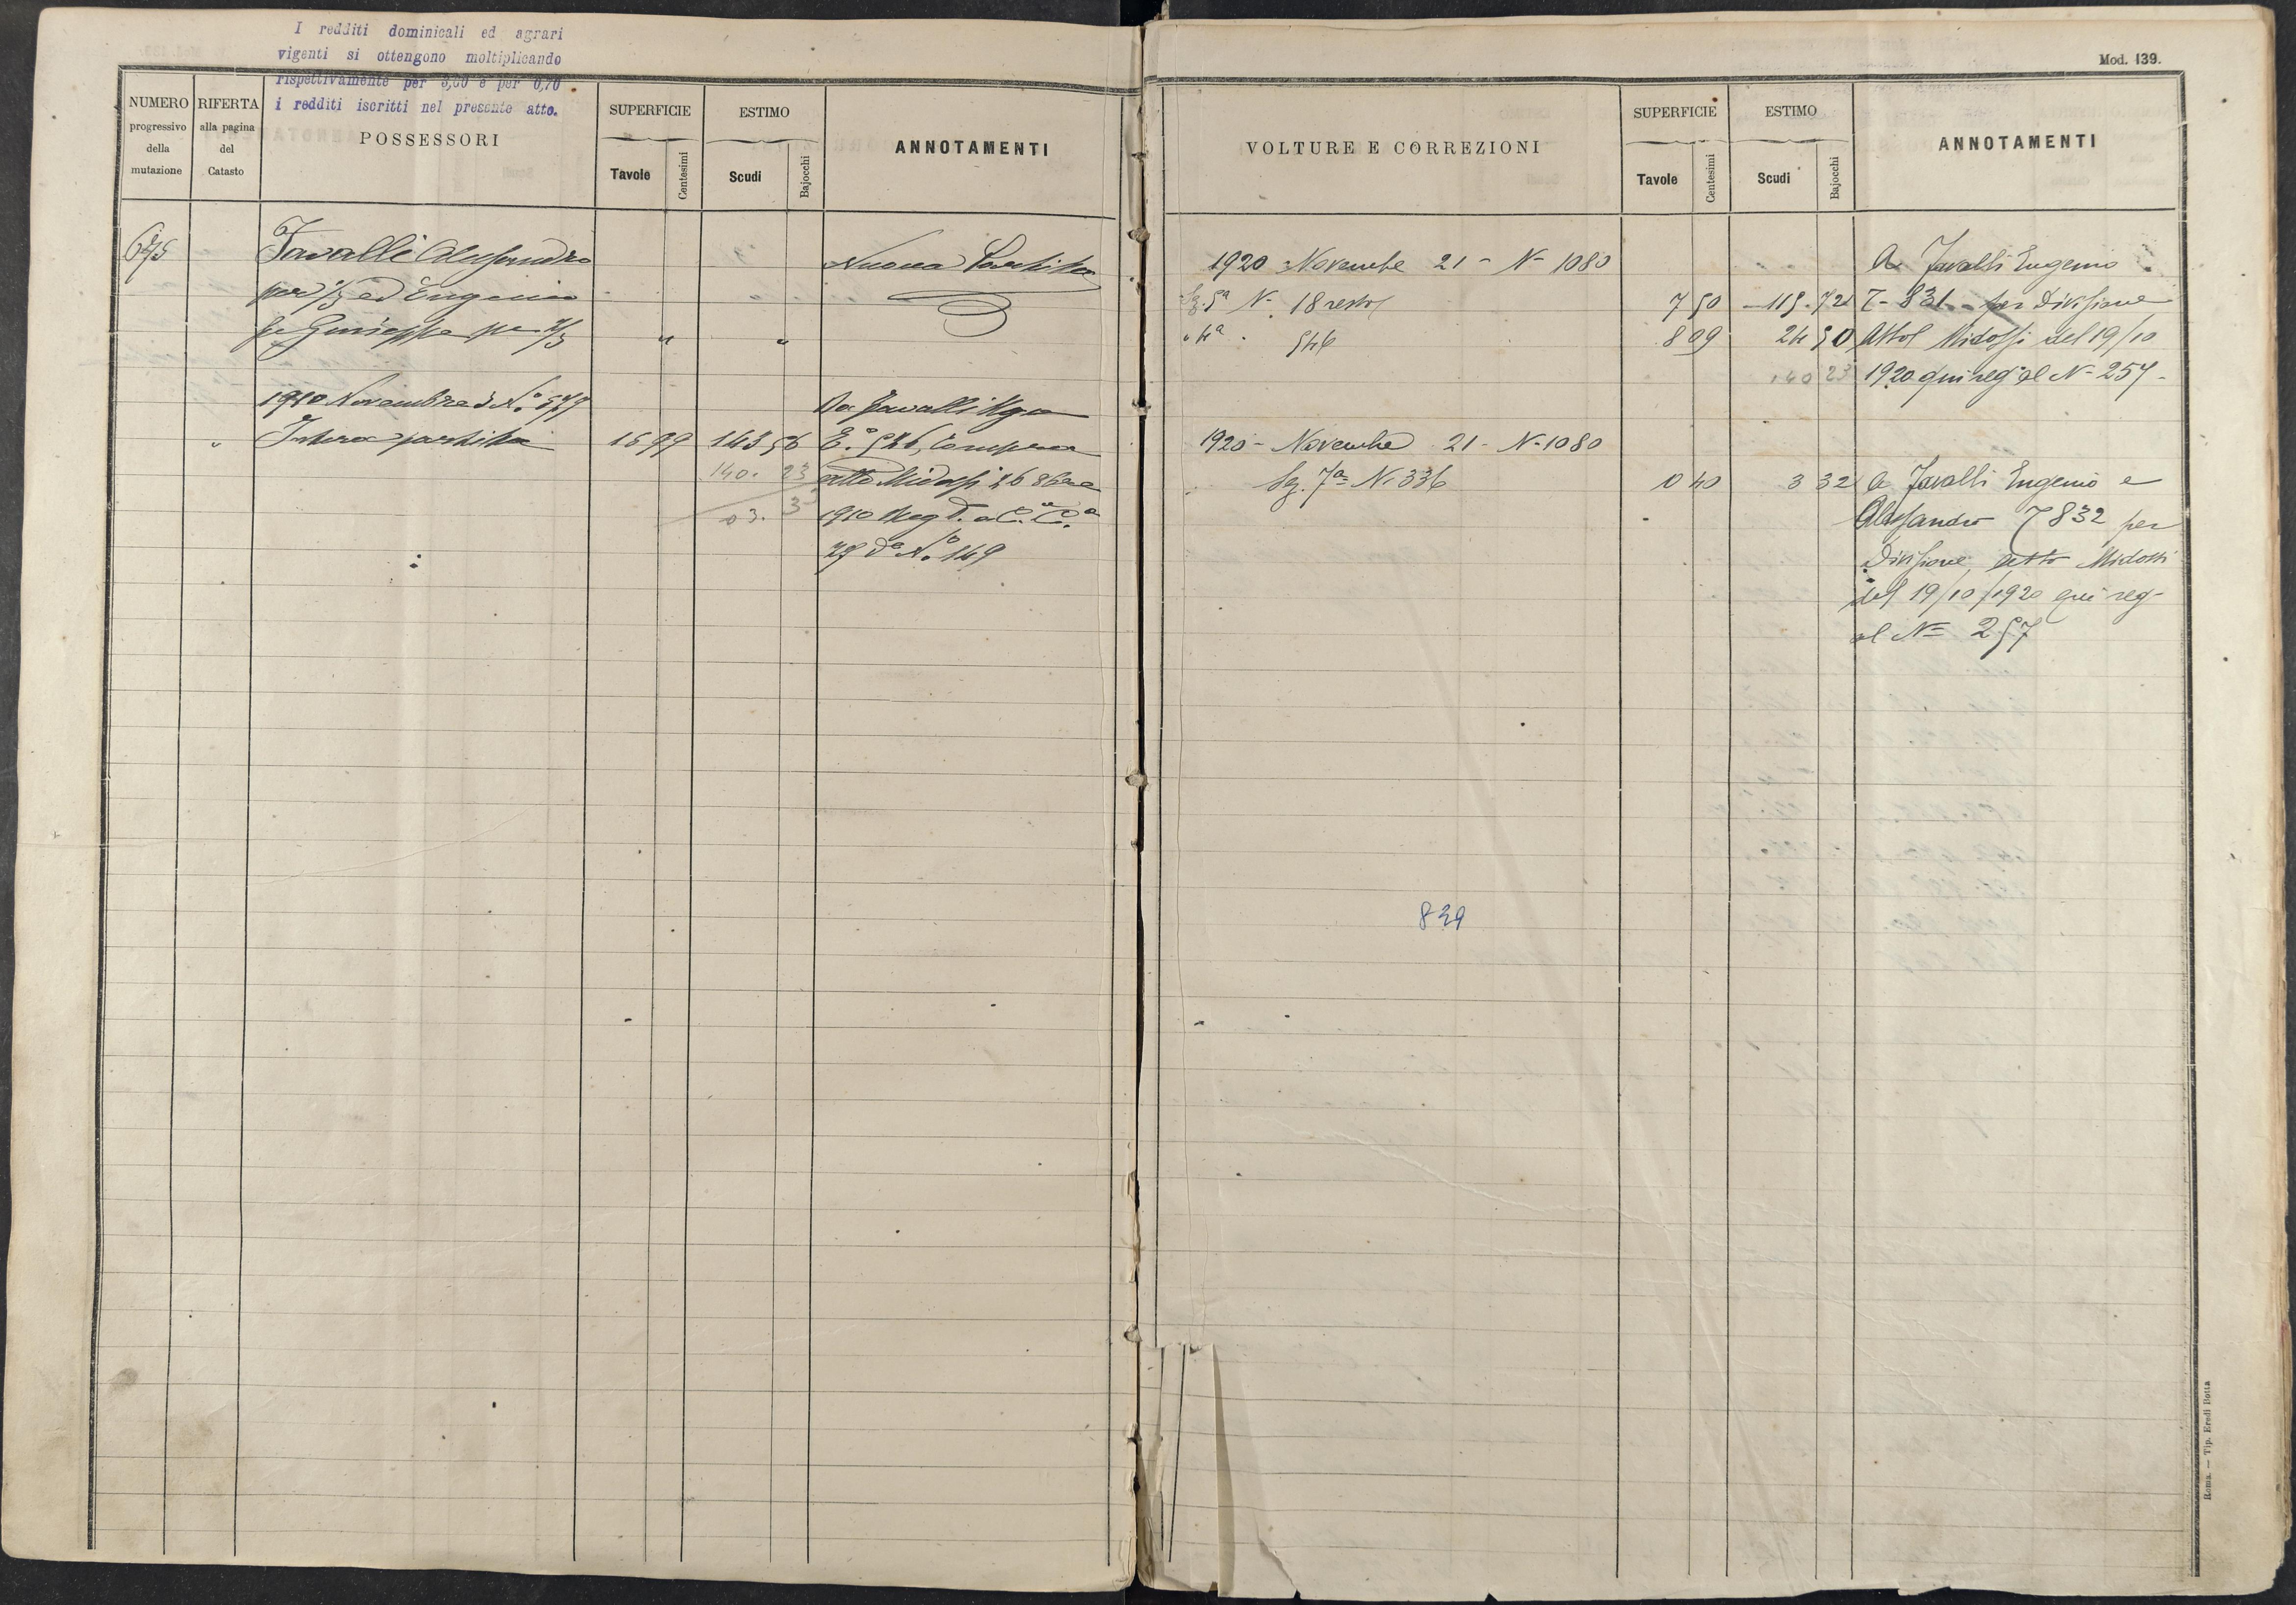 I redditi dominicali ed agrari
vigenti si ottengono moltiplicando
rispettivamente per 3,00 e per 0,70
i redditi iscritti nel presente atto.
NUMERO progressivo della mutazione
RIFERTA alla pagina del Catasto
POSSESSORI
SUPERFICIE
Tavole
Centesimi
ESTIMO
Scudi
Bajocchi
ANNOTAMENTI
675
Javalli Alessandro
per 1/3 ed Eugenio
fu Giuseppe per 2/3
Nuova Partita
1910 Novembre 3 N.°
Intera partita 15 99 143 56
140. 23
03. 3
Da Javalli
E.° 546, Compra
atto Midossi 26 8bre
1910 Reg
29 d.° N.° 149
Mod. 139.
VOLTURE E CORREZIONI
SUPERFICIE
Tavole
Centesimi
ESTIMO
Scudi
Bajocchi
ANNOTAMENTI
1920 Novembe 21 - N- 1080
Sez. 5ª N. 18 7 50 115-72
" 4ª . 546 8 09 24 50
140 23
A Javalli Eugenio
T- 831 - per Divisione
Midossi del 19/10
1920 qui reg° al N- 257-
1920 - Novembe 21 - N-1080
Sez. 7ª N- 336 0 40 3 32
A Javalli Eugenio e
Alessandro T 832 per
Divisione, atto Midossi
del 19/10/1920 qui reg-
al N= 257
839
Roma. — Tip. Eredi Botta